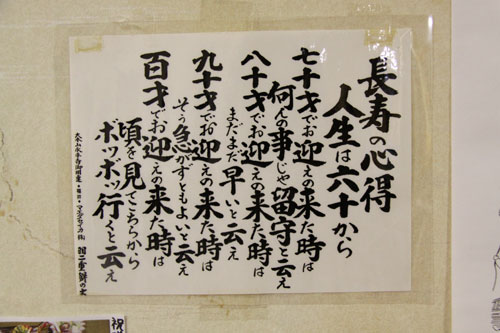 長寿の心得
人生は六十から
七十才でお迎えの来た時は
何んの事じゃ留守と云え
八十才でお迎えの来た時は
まだまだ早いと云え
九十才でお迎えの来た時は
そう急がずともよいと云え
百才でお迎えの来た時は
頃を見てこちらから
ボツボツ行くと云え
祝